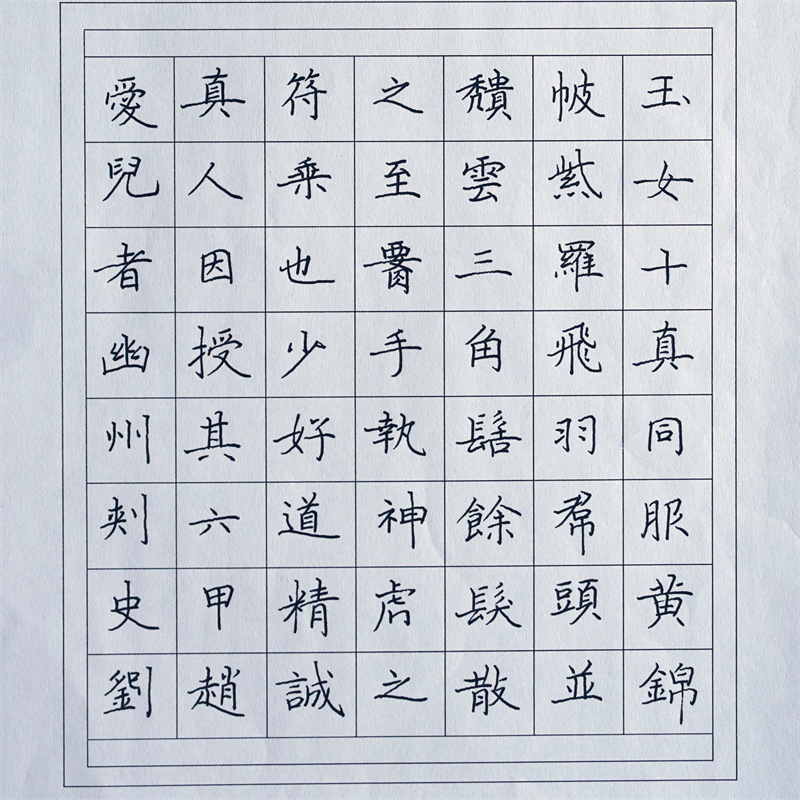 玉女十真同服黄錦
帔紫羅飛羽帬頭並
穨雲三角髻餘髮散
之至手執神虎之
符乗也少好道精誠
真人因授其六甲趙
愛兒者幽州刾史劉